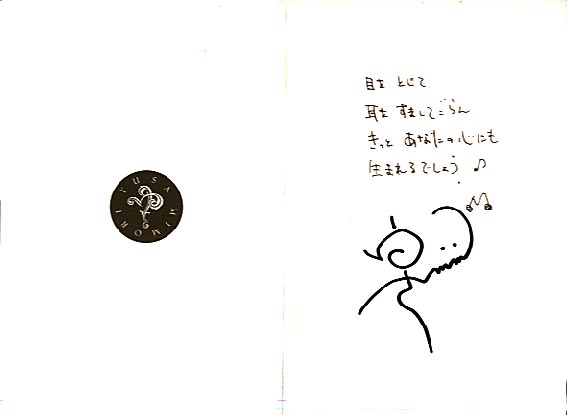 YUSA MIMORI
目を とじて
耳を すましてごらん
きっと あなたの心にも
生まれるでしょう ♫